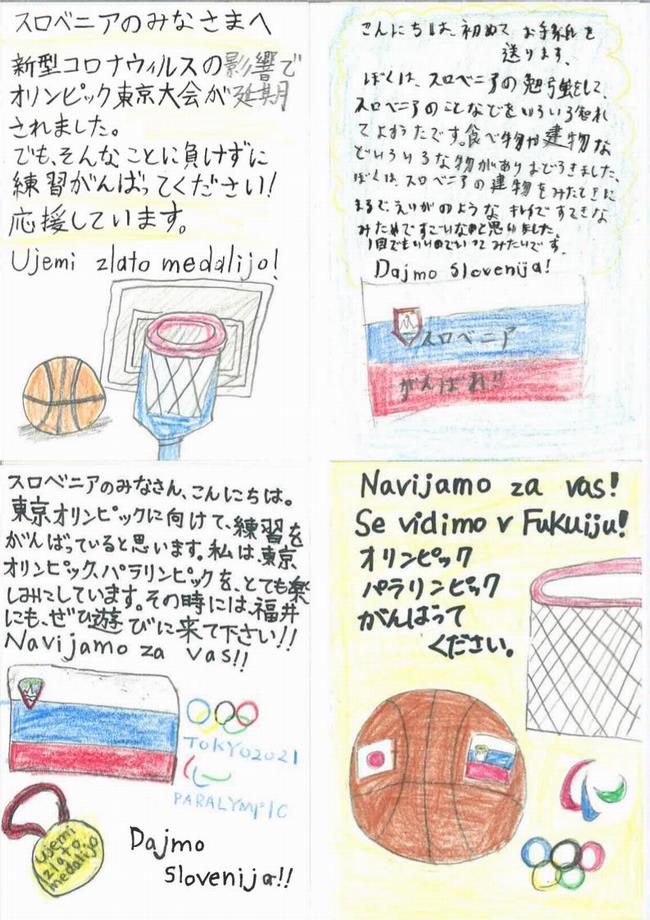 スロベニアのみなさまへ
新型コロナウィルスの影響で
オリンピック東京大会が延期
されました。
でも、そんなことに負けずに
練習がんばってください!
応援しています。
Ujemi zlato medalijo!
こんにちは、初めて お手紙を
送ります。
ぼくは、スロベニアの勉強をして、
スロベニアのことなどをいろいろ知れ
てよかったです。食べ物や建物な
どいろいろな物がありおどろきました。
ぼくは、スロベニアの建物をみたときに
まるで、えいがのような キレイで すてきな
みためですごいなと思いました。
1回でもいいのでいってみたいです。
Dajmo Slovenija!
スロベニア
がんばれ!!
スロベニアのみなさん、こんにちは。
東京オリンピックに向けて、練習を
がんばっていると思います。私は、東京
オリンピック、パラリンピックを、とても楽
しみにしています。その時には、福井
にも、ぜひ遊びに来て下さい!!
Navijamo za vas!!
TOKYO2021
PARALYMPIC
Ujemi
zlato
medalijo
Dajmo
Slovenija!!
Navijamo za vas!
Se vidimo v Fukuiju!
オリンピック
パラリンピック
がんばって
ください。